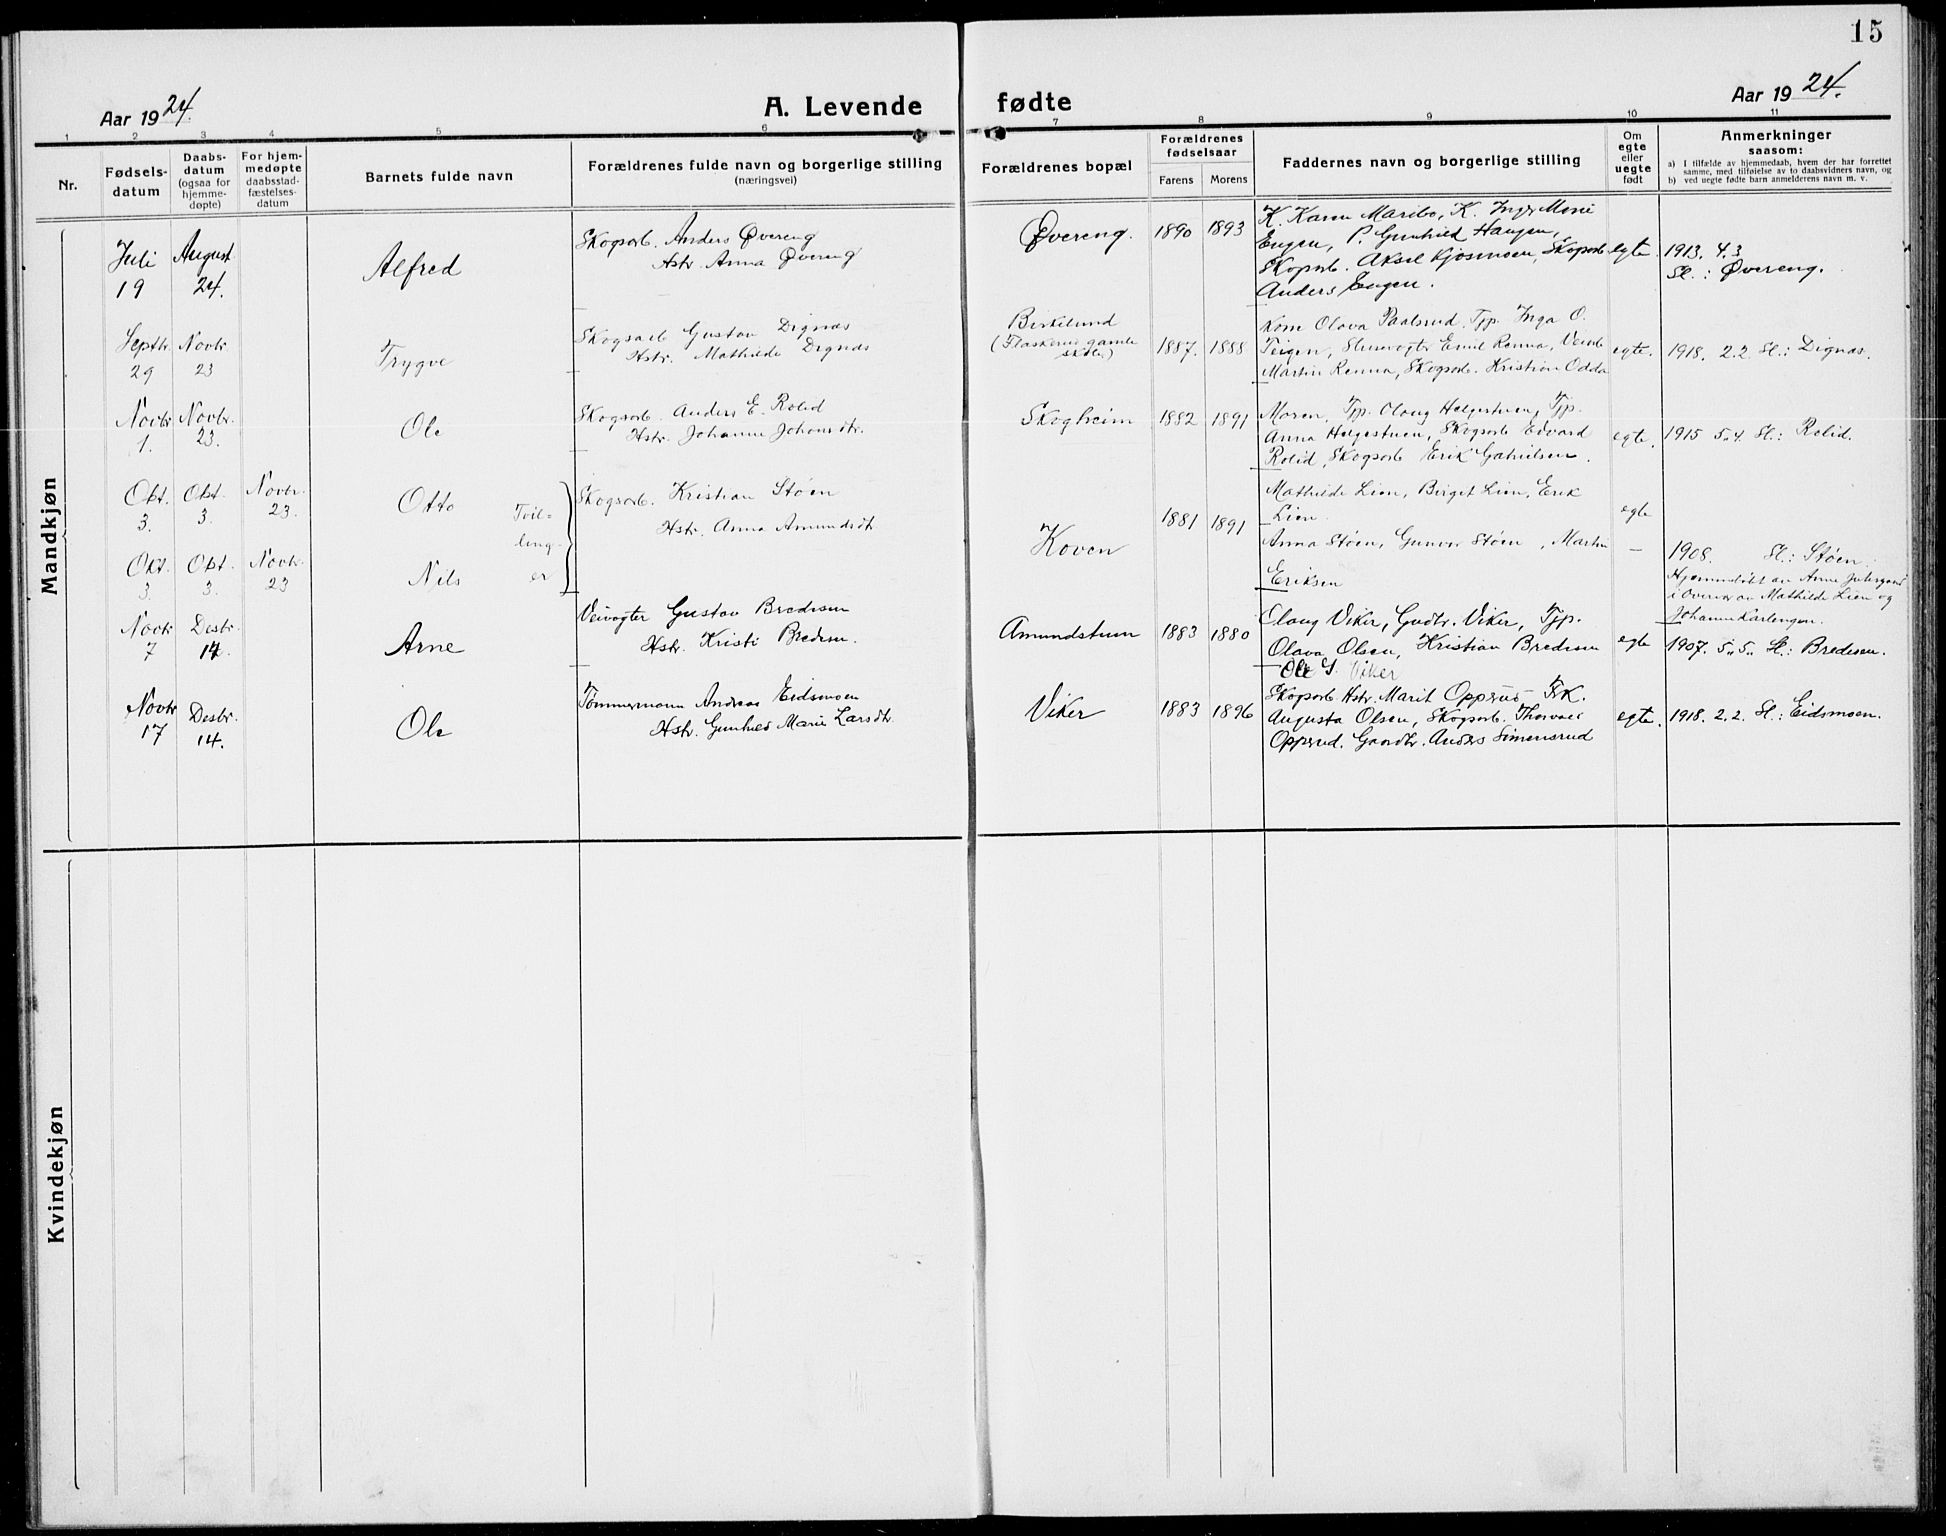 15
Aar 1924.
A. Levende fødte
Aar 1924.
1 2 3 4 5 6 7 8 9 10 11
Nr.
Fødsels-
datum
Daabs-
datum
(ogsaa for
hjemme-
døpte)
For hjem-
medøpte
daabsstad-
fæstelses-
datum
Barnets fulde navn
Forældrenes fulde navn og borgerlige stilling
(næringsvei)
Forældrenes bopæl
Forældrenes
fødselsaar
Farens Morens
Faddernes navn og borgerlige stilling
Om
egte
eller
uegte
født
Anmerkninger
saasom:
a) I tilfælde av hjemmedaab, hvem der har forrettet
samme, med tilføielse av to daabsvidners navn, og
b) ved uegte fødte barn anmelderens navn m. v.
Mandkjøn
Juli
19
August
24.
Alfred
Skogsarb. Anders Øvereng
Hstr. Anna Øvereng
Øvereng.
1890 1893
K. Karen Maribo, K. Inger Marie
Engen, P. Gunhild Haugen,
Skogsarb. Aksel Kjosmoen, Skogsarb
Anders Engen.
egte.
1913. 4.3
Sl.: Øvereng.
Septbr.
29
Novbr
23
Trygve
Skogsarb Gustav Dignæs
Hstr. Mathilde Dignæs
Birkelund
(Flaskerud gamle
skole)
1887. 1888
Kone Olava Paalsrud, Tjp. Inga O.
Teigen, Slusevogter Emil Renna,
Martin Renna, Skogsarb. Kristian Odda
egte.
1918. 2.2 Sl.: Dignæs.
Novbr
1.
Novbr.
23.
Ole
Skogsarb. Anders E. Rolid
Hstr. Johanne Johansdtr.
Skogheim
1882 1891
Moren, Tjp. Olaug Helgestuen, Tjp.
Anna Helgestuen, Skogsarb Edvard
Rolid, Skogsarb Erik Gabrielsen.
egte.
1915 5.4. Sl.: Rolid.
Okt.
3.
Okt.
3.
Novbr.
23.
Otto
Tvil-
ling-
er
Skogsarb. Kristian Støen
Hstr. Anna Amundsdtr
Koven
1881 1891
Mathilde Lien, Birgit Lien, Erik
Lien.
egte
Okt.
3.
Okt.
3.
Novbr.
23
Nils
Anna Støen, Gunvor Støen, Martin
Eriksen
—
1908. Sl.: Støen.
Hjemmedøbt av Anne
i Overvær av Mathilde Lien og
Johanne Karlengen.
Novbr
7
Desbr.
14.
Arne
Veivogter Gustav Bredesen
Hstr. Kristi Bredesen.
Amundstuen
1883 1880
Olaug Viker, Gadbr. Viker, Tjp.
Olava Olsen, Kristian Bredesen
Ole S. Viker
egte
1907. 5.5. Sl.: Bredesen.
Novbr
17
Desbr.
14.
Ole
Tømmermann Andreas Eidsmoen
Hstr. Gunhild Marie Larsdtr.
Viker
1883 1896
Skogsarb Hstr. Marit Opperud Frk.
Augusta Olsen, Skogsarb. Thorvald
Opperud. Gaardbr. Anders Simensrud
egte.
1918. 2.2. Sl.: Eidsmoen.
Kvindekjøn